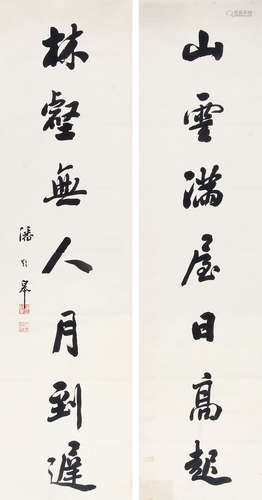 山雲滿屋日高起
林壑無人月到遲
潘齡皋